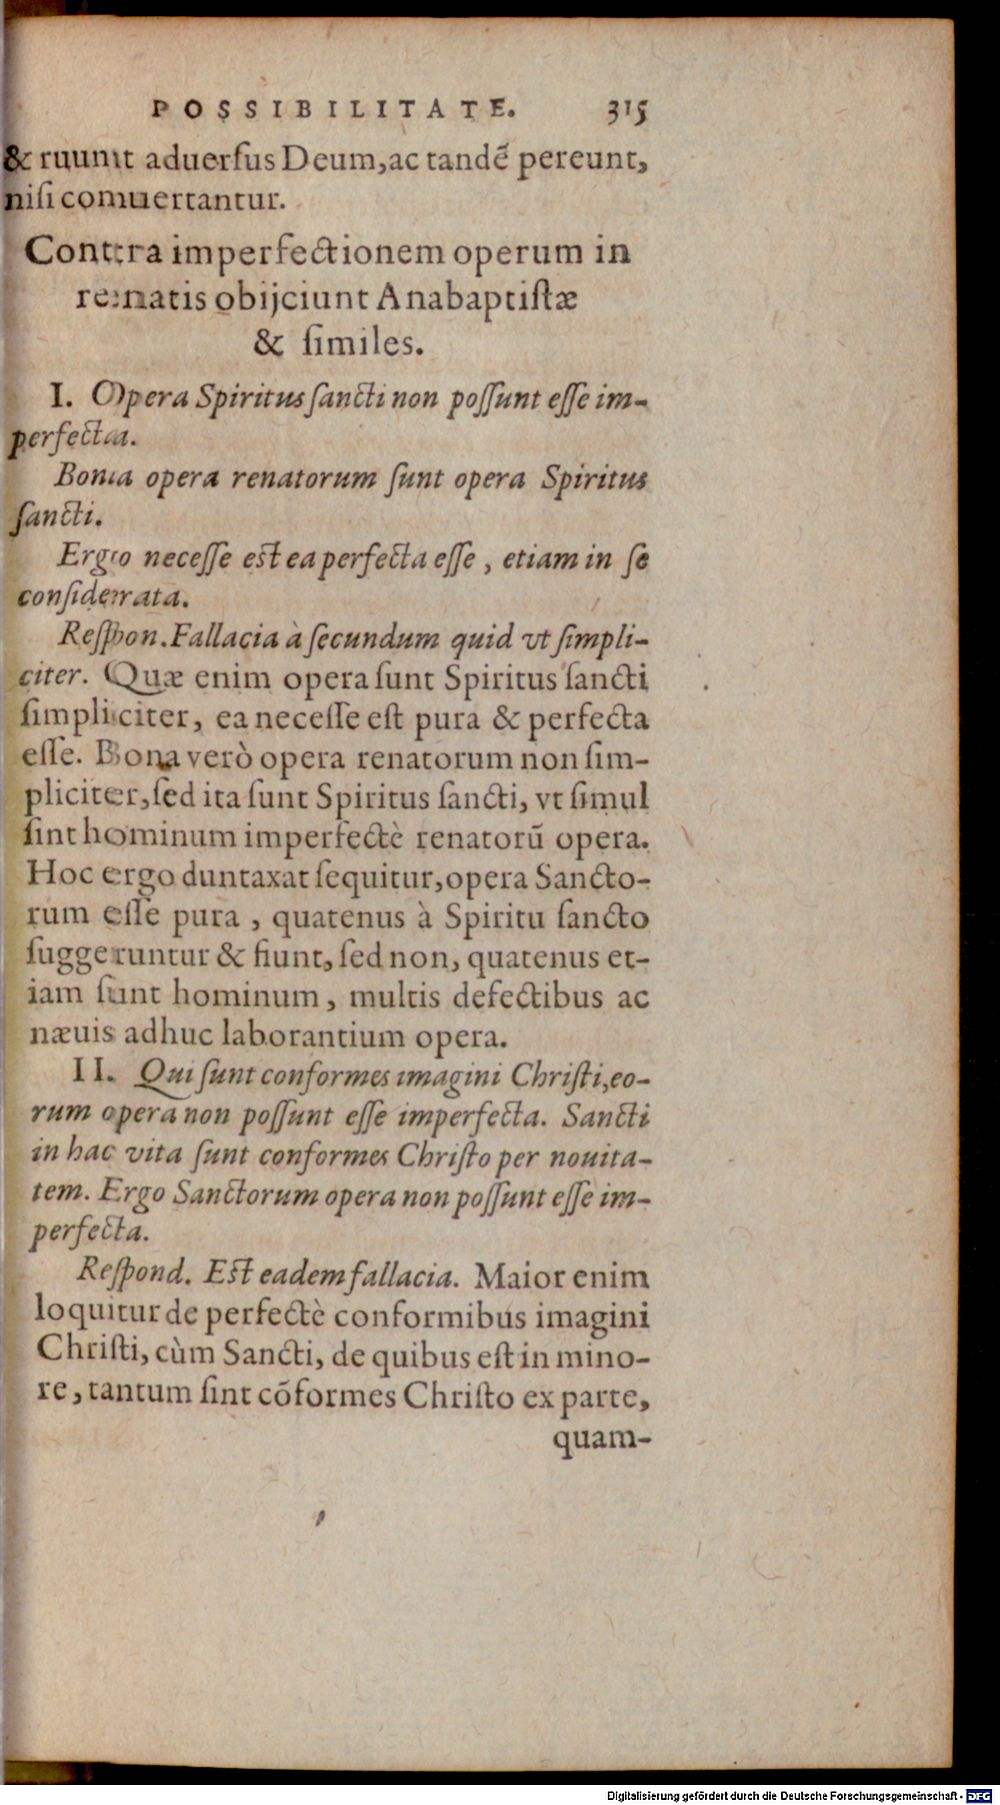 POSSIBILITATE. 315
& ruunt aduerſus Deum, ac tandẽ pereunt,
niſi conuertantur.
Contra imperfectionem operum in
renatis obijciunt Anabaptiſtæ
& ſimiles.
I. Opera Spiritus ſancti non poſſunt eſſe im-
perfecta.
Bona opera renatorum ſunt opera Spiritus
ſancti.
Ergo neceſſe eſt ea perfecta eſſe, etiam in ſe
conſiderata.
Reſpon. Fallacia à ſecundum quid vt ſimpli-
citer. Quæ enim opera ſunt Spiritus ſancti
ſimpliciter, ea neceſſe eſt pura & perfecta
eſſe. Bona verò opera renatorum non ſim-
pliciter, ſed ita ſunt Spiritus ſancti, vt ſimul
ſint hominum imperfectè renatorũ opera.
Hoc ergo duntaxat ſequitur, opera Sancto-
rum eſſe pura, quatenus à Spiritu ſancto
ſuggeruntur & fiunt, ſed non, quatenus et-
iam ſunt hominum, multis defectibus ac
næuis adhuc laborantium opera.
II. Qui ſunt conformes imagini Chriſti, eo-
rum opera non poſſunt eſſe imperfecta. Sancti
in hac vita ſunt conformes Chriſto per nouita-
tem. Ergo Sanctorum opera non poſſunt eſſe im-
perfecta.
Reſpond. Eſt eadem fallacia. Maior enim
loquitur de perfectè conformibus imagini
Chriſti, cùm Sancti, de quibus eſt in mino-
re, tantum ſint cõformes Chriſto ex parte,
quam-
Digitalisierung gefördert durch die Deutsche Forschungsgemeinschaft - DFG